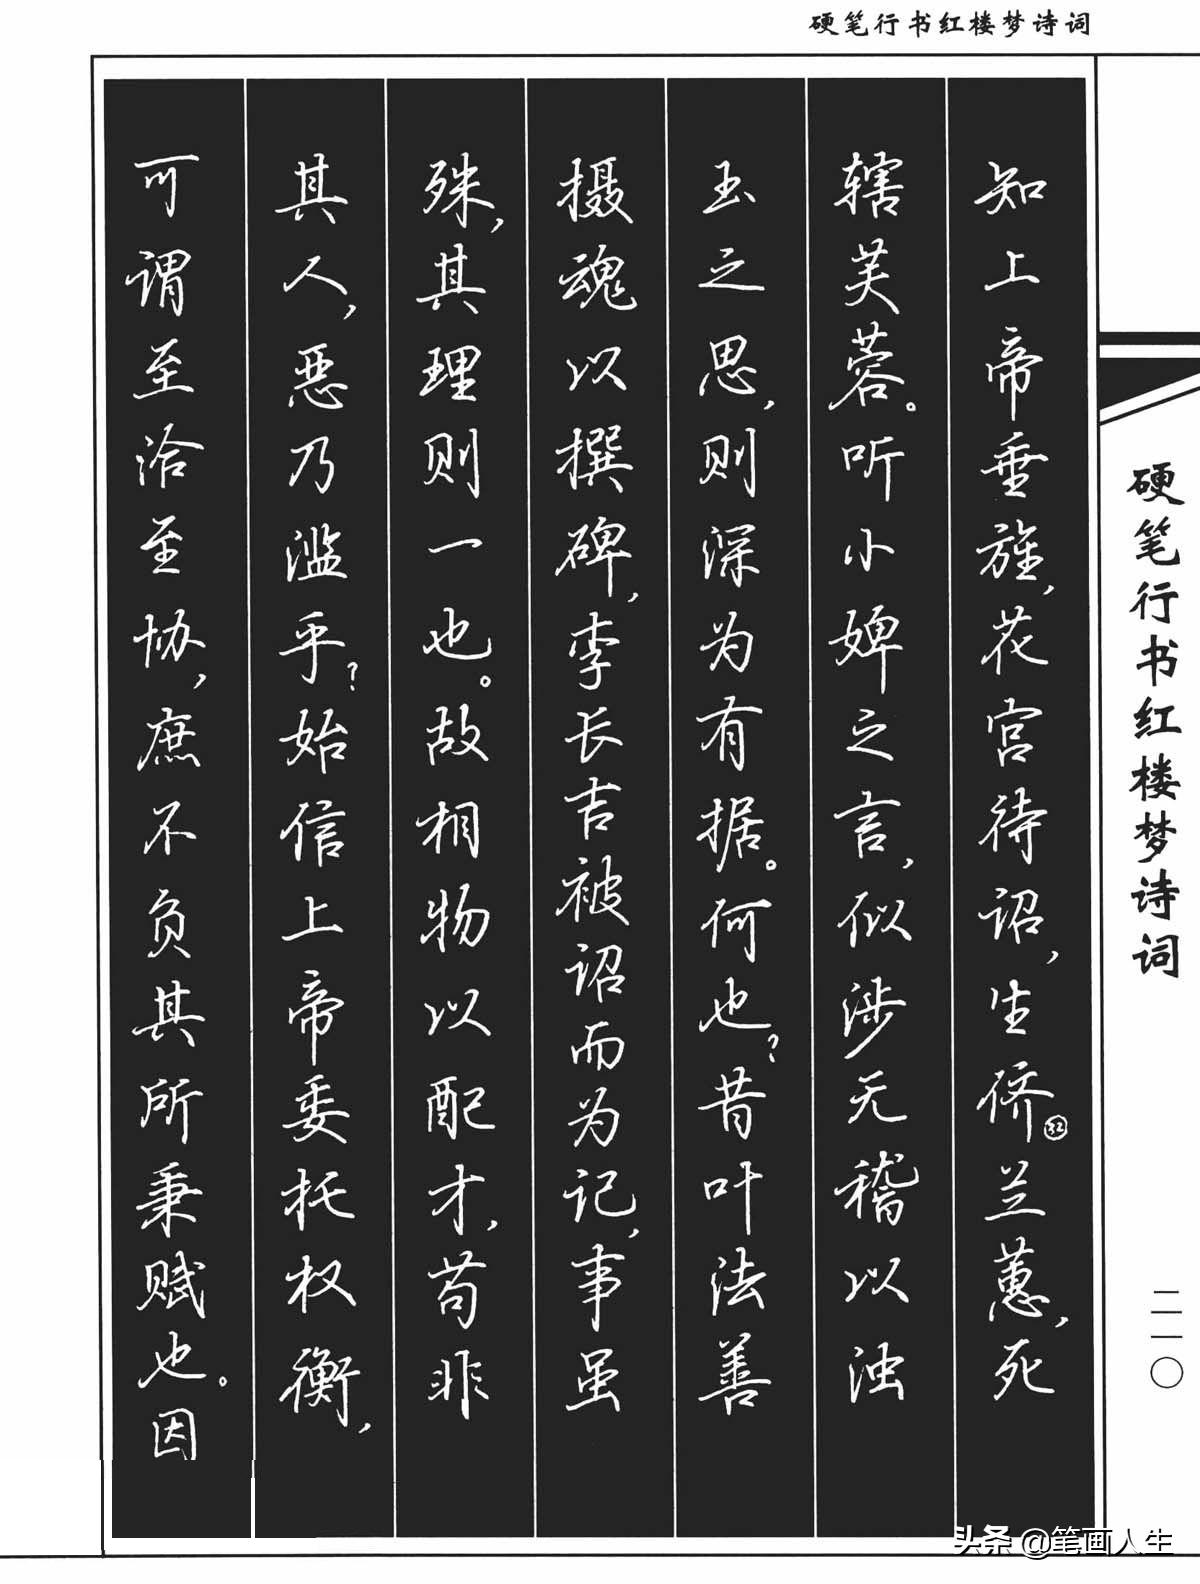 硬笔行书红楼梦诗词
知上帝垂旌,花宫待诏,生侪㉜兰蕙,死
辖芙蓉。听小婢之言,似涉无稽以浊
玉之思,则深为有据。何也?昔叶法善
摄魂以撰碑,李长吉被诏而为记,事虽
殊,其理则一也。故相物以配才,苟非
其人,恶乃滥乎?始信上帝委托权衡,
可谓至洽至协,庶不负其所秉赋也。因
硬笔行书红楼梦诗词
二一〇
头条 @笔画人生